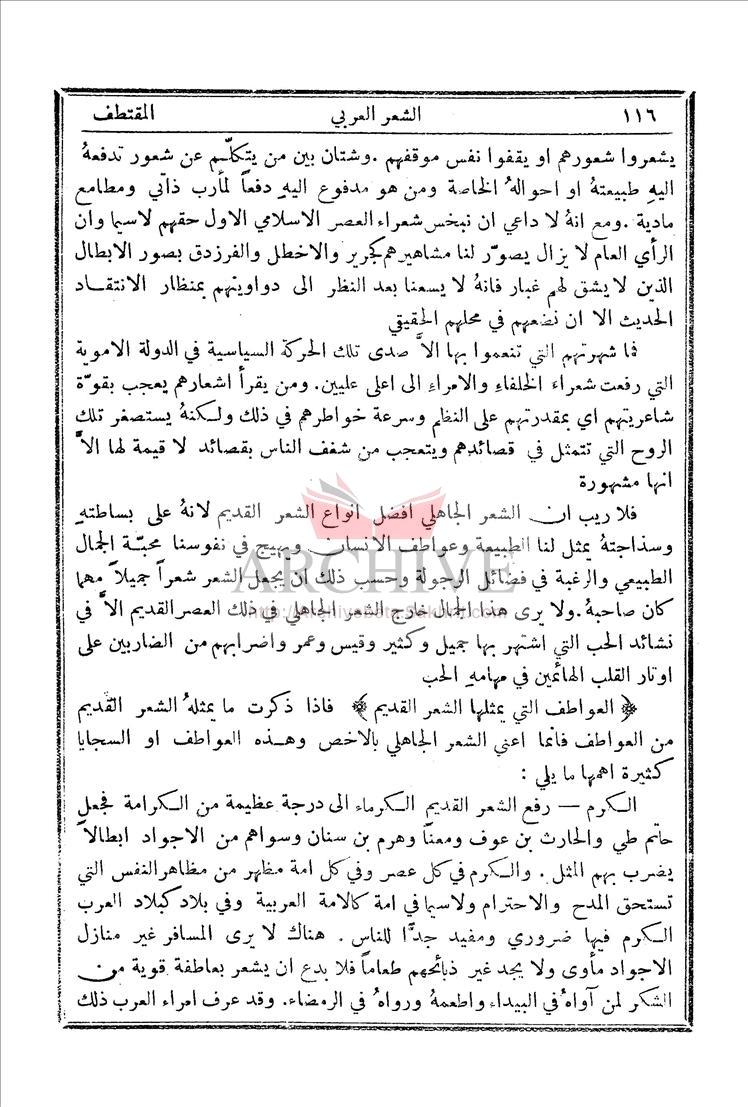 ١١٦ الشعر العربي المقتطف
يشعروا شعورهم او يقفوا نفس موقفهم . وشتان بين من يتكلّم عن شعور تدفعهُ
اليهِ طبيعتهُ او احوالهُ الخاصة ومن هو مدفوع اليهِ دفعاً لمأرب ذاتي ومطامع
مادية . ومع انهُ لا داعي ان نبخس شعراء العصر الاسلامي الاول حقهم لاسيما وان
الرأي العام لا يزال يصوّر لنا مشاهيرهم كجرير والاخطل والفرزدق بصور الابطال
الذين لا يشق لهم غبار فانهُ لا يسعنا بعد النظر الى دواوينهم بمنظار الانتقاد
الحديث الا ان نضعهم في محلهم الحقيقي
فما شهرتهم التي تنعموا بها الاَّ صدى تلك الحركة السياسية في الدولة الاموية
التي رفعت شعراء الخلفاء والامراء الى اعلى عليين. ومن يقرأ اشعارهم يعجب بقوّة
شاعريتهم اي بمقدرتهم على النظم وسرعة خواطرهم في ذلك ولكنهُ يستصغر تلك
الروح التي تتمثل في قصائدهم ويتعجب من شغف الناس بقصائد لا قيمة لها الاَّ
انها مشهورة
فلا ريب ان الشعر الجاهلي افضل انواع الشعر القديم لانهُ على بساطتهِ
وسذاجتهُ يمثل لنا الطبيعة وعواطف الانسان ويهيج في نفوسنا محبّة الجمال
الطبيعي والرغبة في فضائل الرجولة وحسب ذلك ان يجعل الشعر شعراً جميلاً مهما
كان صاحبهُ. ولا يرى هذا الجمال خارج الشعر الجاهلي في ذلك العصر القديم الاَّ في
نشائد الحب التي اشتهر بها جميل وكثير وقيس وعمر واضرابهم من الضاربين على
اوتار القلب الهائمين في مهامهِ الحب
﴿ العواطف التي يمثلها الشعر القديم ﴾ فاذا ذكرت ما يمثلهُ الشعر القديم
من العواطف فانما اعني الشعر الجاهلي بالاخص وهذه العواطف او السجايا
كثيرة اهمها ما يلي :
الكرم — رفع الشعر القديم الكرماء الى درجة عظيمة من الكرامة فجعل
حاتم طي والحارث بن عوف ومعنّا وهرم بن سنان وسواهم من الاجواد ابطالاً
يضرب بهم المثل . والكرم في كل عصر وفي كل امة مظهر من مظاهر النفس التي
تستحق المدح والاحترام ولاسيما في امة كالامة العربية وفي بلاد كبلاد العرب
الكرم فيها ضروري ومفيد جدًّا للناس . هناك لا يرى المسافر غير منازل
الاجواد مأوى ولا يجد غير ذبائحهم طعاماً فلا بدع ان يشعر بعاطفة قوية من
الشكر لمن آواهُ في البيداء واطعمهُ ورواهُ في الرمضاء. وقد عرف امراء العرب ذلك
ARCHIVE